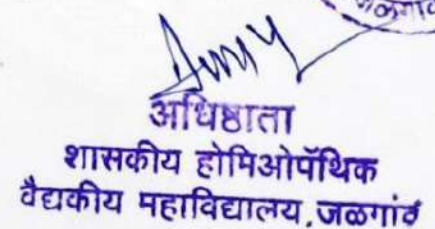 जळगांव
अधिष्ठाता
शासकीय होमिओपॅथिक
वैद्यकीय महाविद्यालय,जळगांव